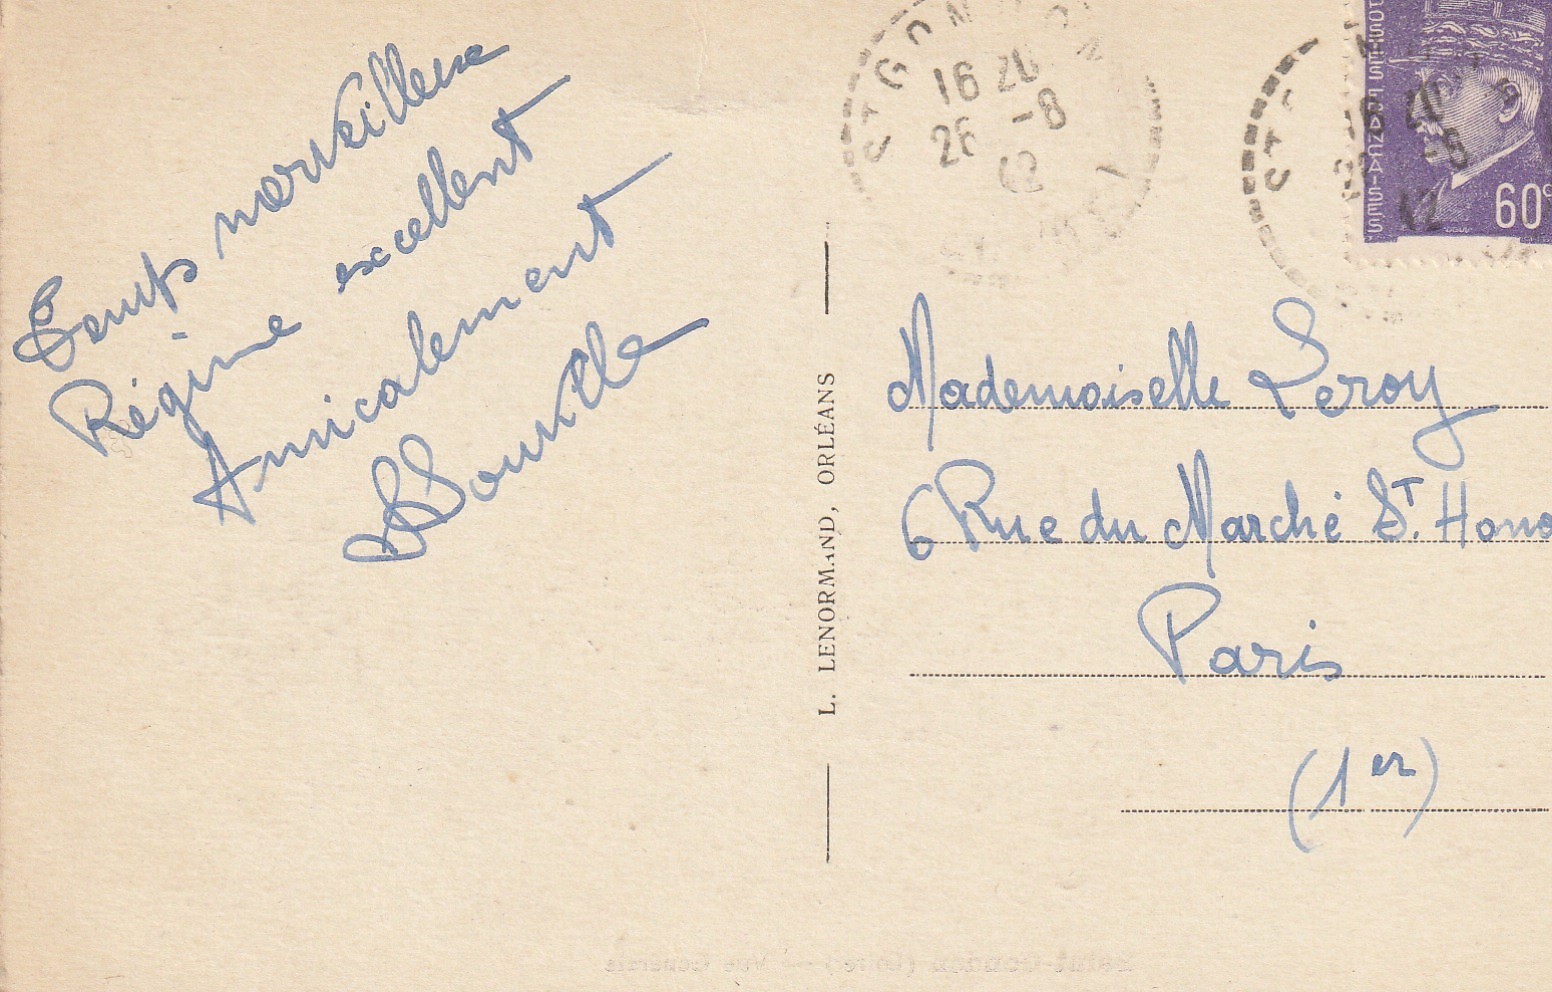 Temps merveilleux
Régime excellent
Amicalement
L. LENORMAND, ORLÉANS
16 20
26 -8
42
POSTES FRANÇAISES
60c
Mademoiselle Leroy
6 Rue du Marché St. Hono
Paris
(1er)